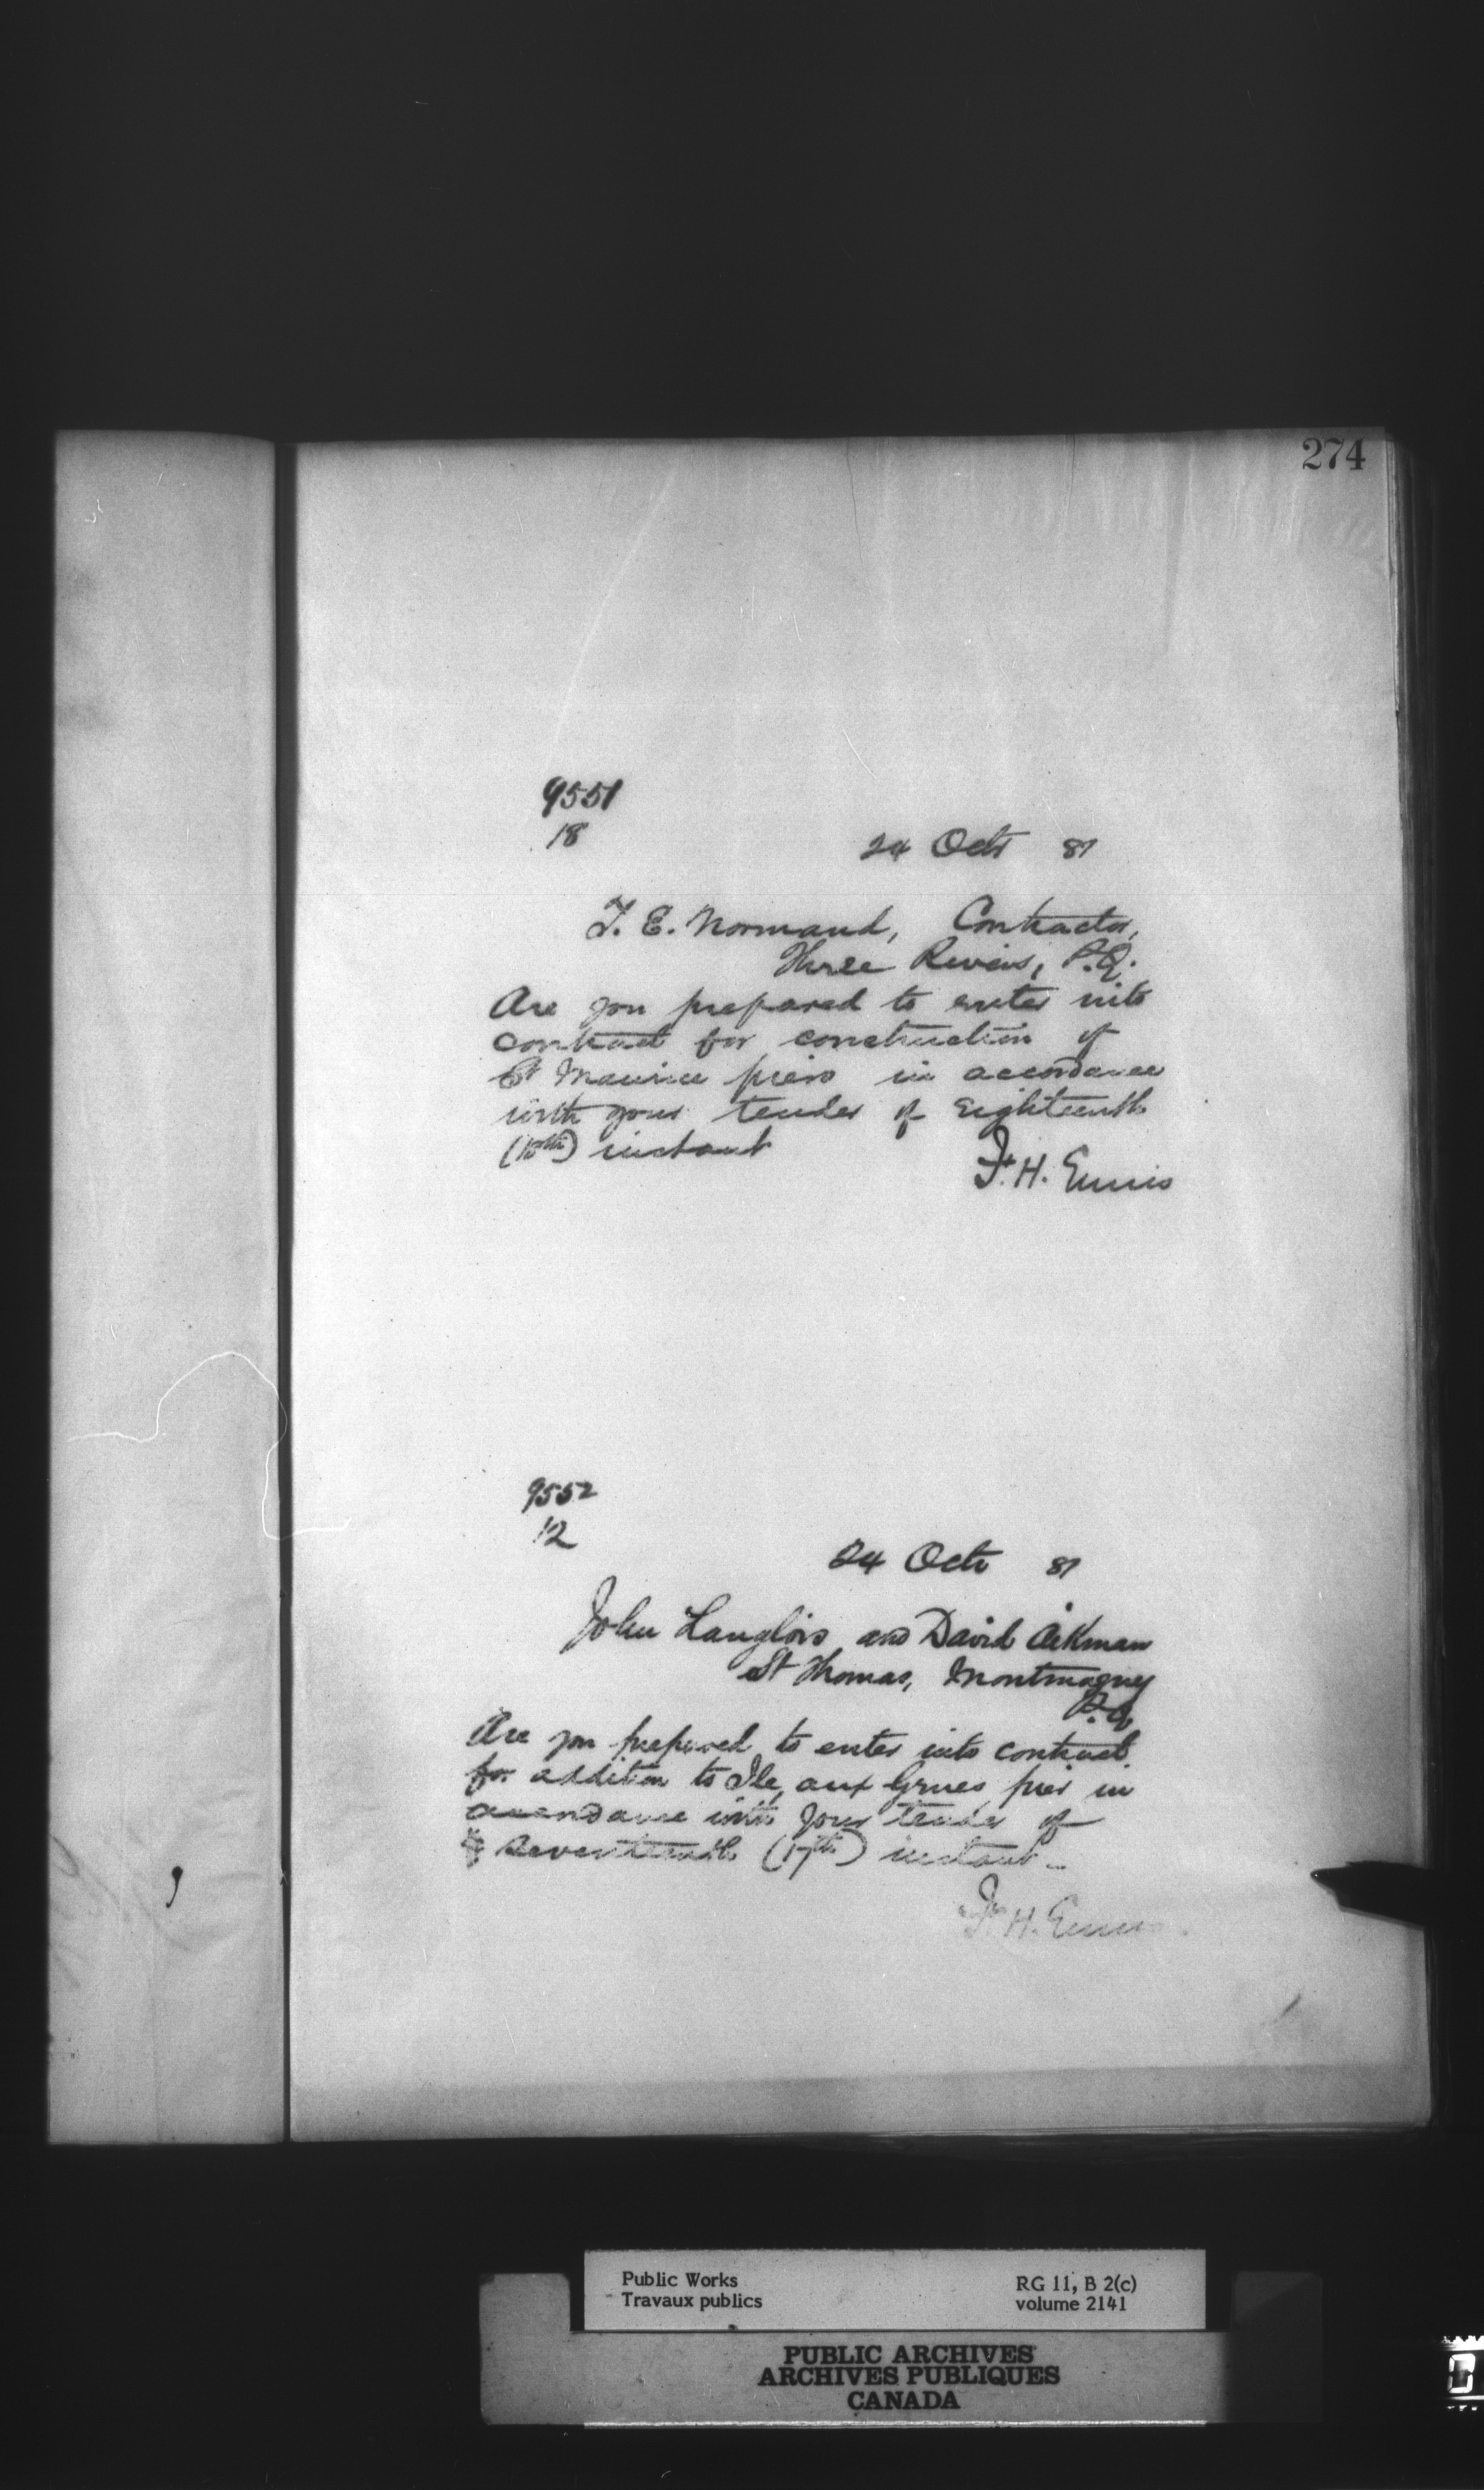 274
9551
18
24 Octr 81
T. E. Normand, Contractor,
Three Rivers, P.Q.
Are you prepared to enter into
contract for construction of
St Maurice piers in accordance
with your tender of eighteenth
(18th) instant
F. H. Ennis
9552
12
24 Octr 81
John Langlois and David Aikman
St Thomas, Montmagny
P.Q.
Are you prepared to enter into contract
for addition to Ile aux Grues pier in
accordance with your tender of
seventeenth (17th) instant_
F. H. Ennis
Public Works
Travaux publics
RG 11, B 2(c)
volume 2141
PUBLIC ARCHIVES
ARCHIVES PUBLIQUES
CANADA